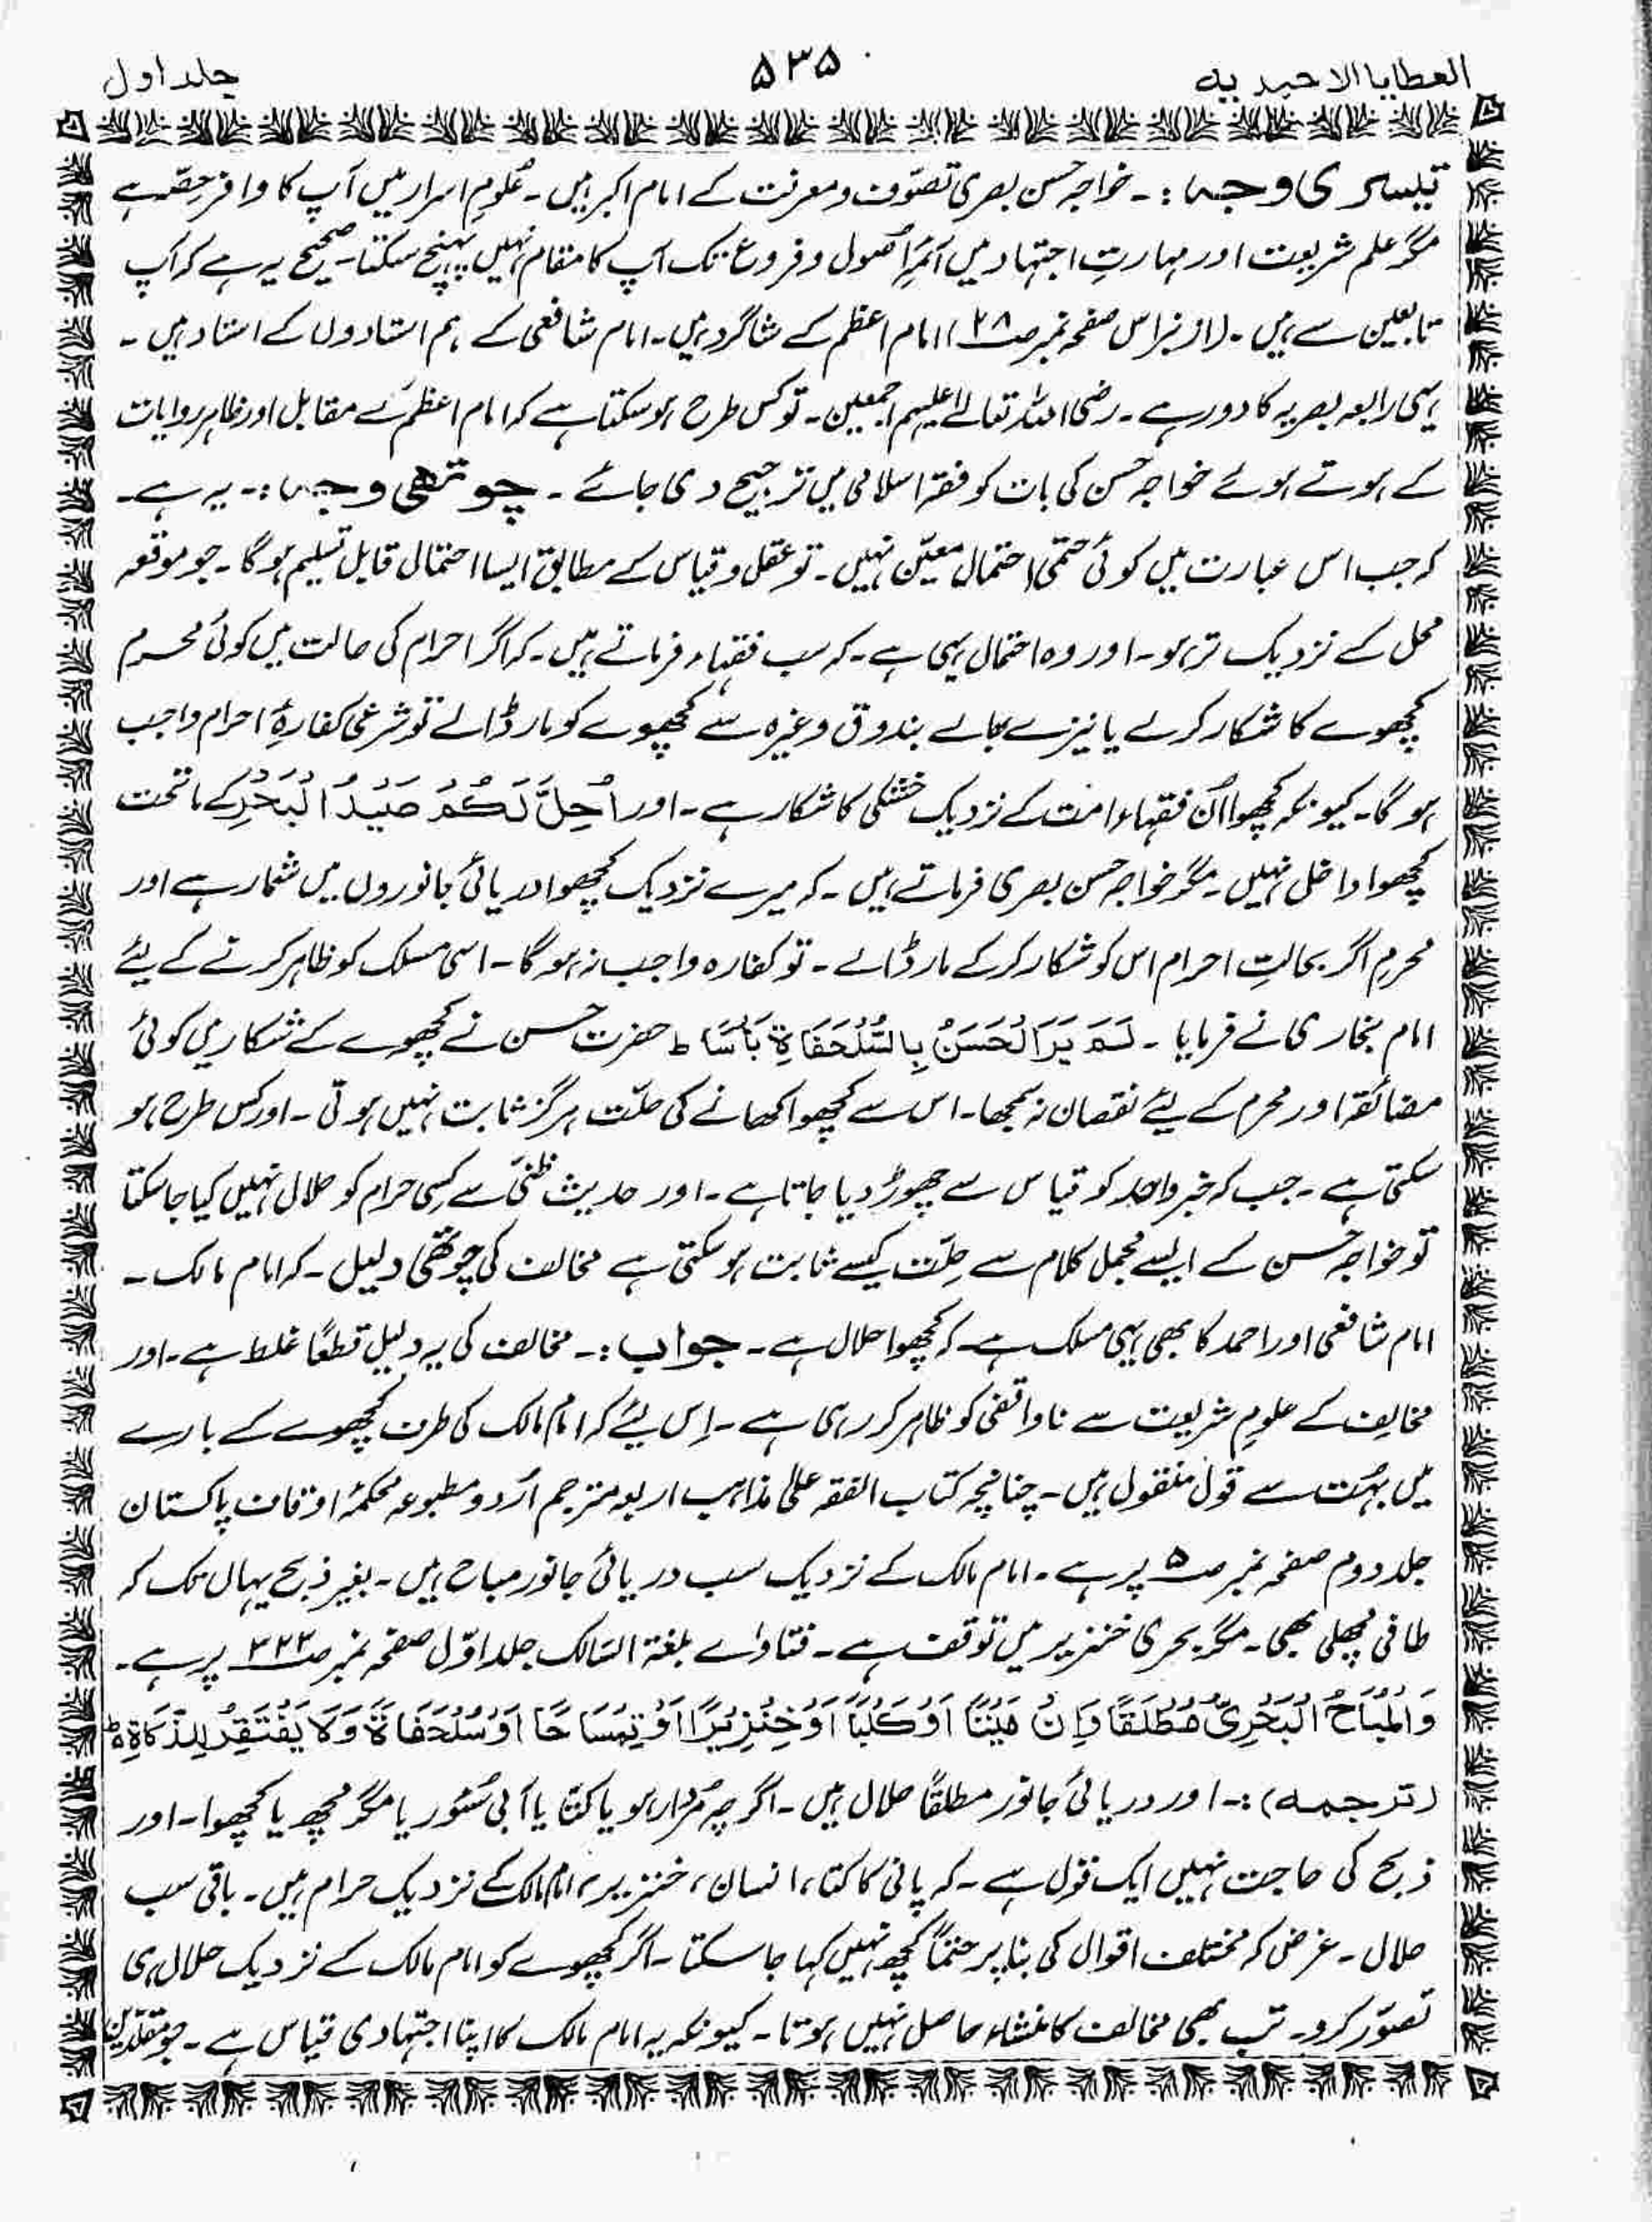 العطایا الاحمدیه
۵۳۵
جلد اول
تیسری وجہ :۔ خواجہ حسن بصری تصوّف و معرفت کے امام اکبر ہیں۔ علُومِ اسرار میں آپ کا وافر حِصّہ ہے
مگر علم شریعت اور مہارتِ اجتہاد میں آئمۂ اصُول و فروع تک آپ کا مقام نہیں پہنچ سکتا۔ صحیح یہ ہے کہ آپ
تابعین سے ہیں۔ (از نبراس صفحہ نمبر صـ ۲۸) امام اعظم کے شاگرد ہیں۔ امام شافعی کے ہم استادوں کے استاد ہیں۔
یہی رابعہ بصریہ کا دور ہے۔ رضی اللہ تعالےٰ علیہم اجمعین۔ تو کس طرح ہو سکتا ہے کہ امام اعظم کے مقابل اور ظاہر روایات
کے ہوتے ہوئے خواجہ حسن کی بات کو فقہ اسلامی میں ترجیح دی جائے۔ چوتھی وجہ :۔ یہ ہے۔
کہ جب اس عبارت میں کوئی حتمی احتمال معیّن نہیں۔ تو عقل و قیاس کے مطابق ایسا احتمال قابل تسلیم ہو گا۔ جو موقعہ
محل کے نزدیک تر ہو۔ اور وہ احتمال یہی ہے۔ کہ سب فقہاء فرماتے ہیں۔ کہ اگر احرام کی حالت میں کوئی محرم
کچھوے کا شکار کرلے یا نیزے بھالے بندوق وغیرہ سے کچھوے کو مار ڈالے تو شرعی کفارۂ احرام واجب
ہو گا۔ کیونکہ کچھوا اُن فقہاءِ امت کے نزدیک خشکی کا شکار ہے۔ اور اُحِلَّ لَکُمْ صَیْدُ الْبَحْرِ کے ماتحت
کچھوا داخل نہیں۔ مگر خواجہ حسن بصری فرماتے ہیں۔ کہ میرے نزدیک کچھوا دریائی جانوروں میں شمار ہے اور
محرم اگر بحالتِ احرام اس کو شکار کر کے مار ڈالے۔ تو کفارہ واجب نہ ہو گا۔ اسی مسلک کو ظاہر کرتے کے لیئے
امام بخاری نے فرمایا۔ لَمْ یَرَ الْحَسَنُ بِالسُّلْحَفَاةِ بَأْسًا ط حضرت حسن نے کچھوے کے شکار میں کوئی
مضائقہ اور محرم کے لیئے نقصان نہ سمجھا۔ اس سے کچھوا کھانے کی حلّت ہرگز ثابت نہیں ہوتی۔ اور کس طرح ہو
سکتی ہے۔ جب کہ خبر واحد کو قیاس سے چھوڑ دیا جاتا ہے۔ اور حدیث ظنّی سے کسِی حرام کو حلال نہیں کیا جا سکتا
تو خواجہ حسن کے ایسے مجمل کلام سے حِلّت کیسے ثابت ہو سکتی ہے مخالف کی چوتھی دلیل۔ کہ امام مالک۔
امام شافعی اور احمد کا بھی یہی مسلک ہے۔ کہ کچھوا حلال ہے۔ جواب :۔ مخالف کی یہ دلیل قطعًا غلط ہے۔ اور
مخالِف کے علومِ شریعت سے ناواقفی کو ظاہر کر رہی ہے۔ اِس لیئے کہ امام مالک کی طرف کچھوے کے بارے
میں بہُت سے قول منقول ہیں۔ چنانچہ کتاب الفقہ علیٰ مذاہب اربعہ مترجم اُردو مطبوعہ محکمۂ اوقاف پاکستان
جلد دوم صفحہ نمبر صـ ۵ پر ہے۔ امام مالک کے نزدیک سب دریائی جانور مباح ہیں۔ بغیر ذبح یہاں تک کہ
طافی مچھلی بھی۔ مگر بحری خنزیر میں توقف ہے۔ فتاواے بلغۃ السّالک جلد اوّل صفحہ نمبر صـ ۳۲۳ پر ہے۔
وَالْمُبَاحُ الْبَحْرِیُّ مُطْلَقًا وَاِنْ مَیْتًا اَوْ کَلْبًا اَوْ خِنْزِیْرًا اَوْ تِمْسَاحًا اَوْ سُلْحَفَاةً وَلَا یَفْتَقِرُ لِلذَّکَاةِ ط
(ترجمہ) :۔ اور دریائی جانور مطلقًا حلال ہیں۔ اگرچہ مُردار ہو یا کتّا یا آبی سُئور یا مگر مچھ یا کچھوا۔ اور
ذبح کی حاجت نہیں ایک قول ہے۔ کہ پانی کا کتا، انسان، خنزیر، امام مالک کے نزدیک حرام ہیں۔ باقی سب
حلال۔ غرض کہ مختلف اقوال کی بنا پر حتمًا کچھ نہیں کہا جا سکتا۔ اگر کچھوے کو امام مالک کے نزدیک حلال ہی
تصوّر کرو۔ تب بھی مخالف کا منشاء حاصل نہیں ہوتا۔ کیونکہ یہ امام مالک کا اپنا اجتہادی قیاس ہے۔ جو مقلّدین